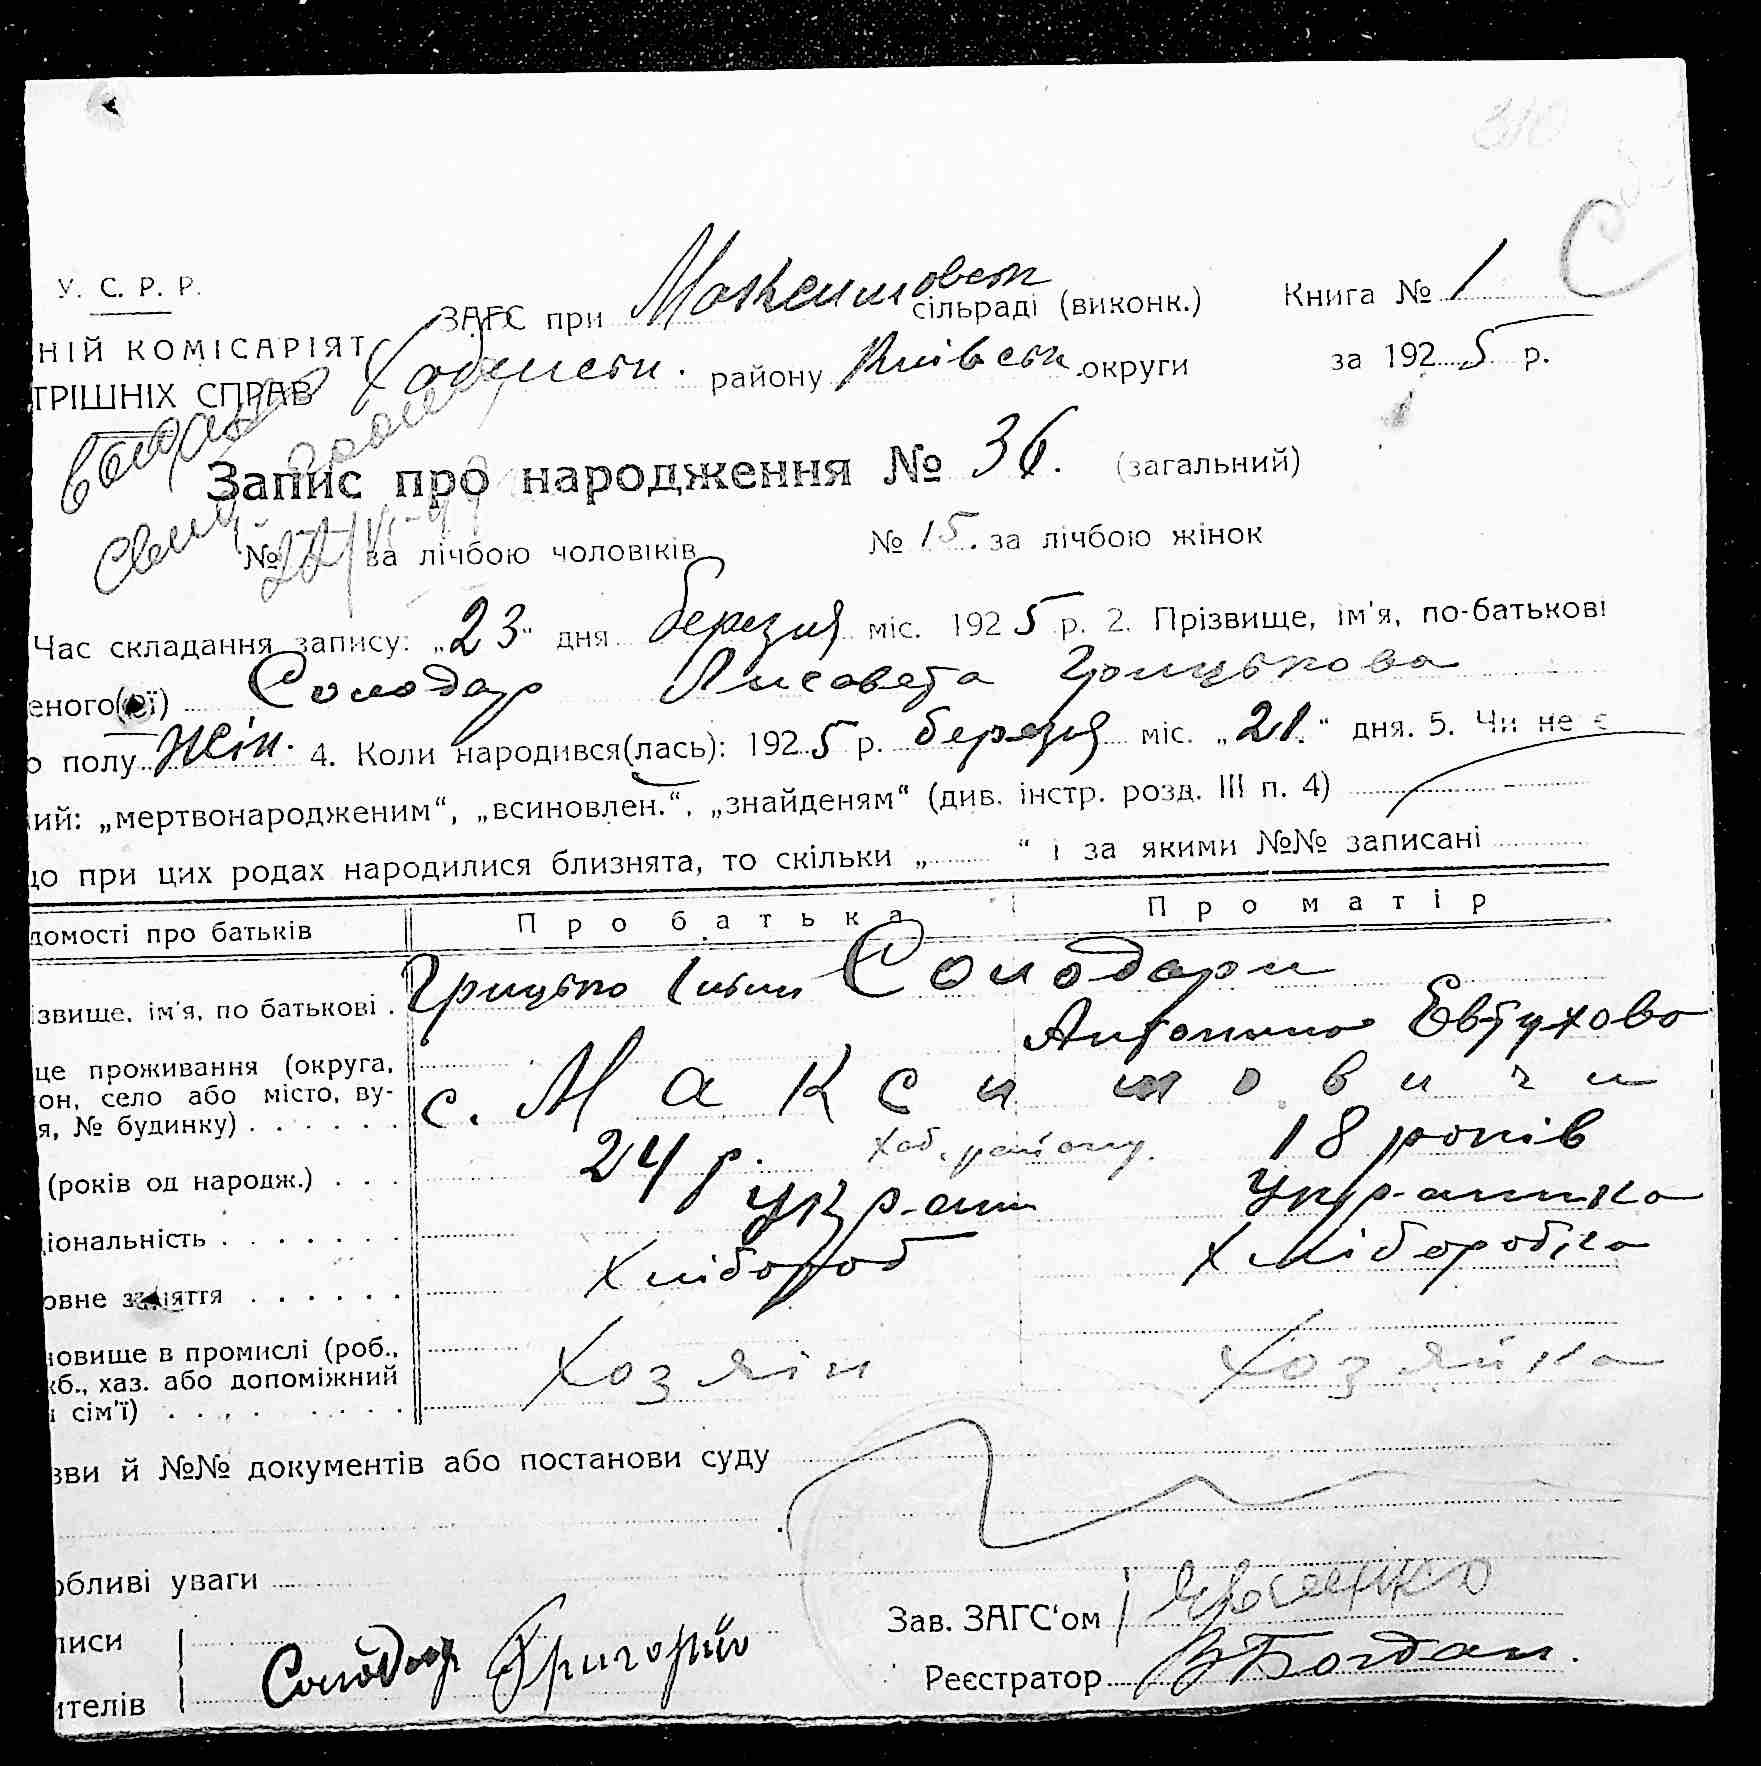 310
У. С. Р. Р.
ЗАГС при Максимовськ сільраді (виконк.) Книга № 1
НІЙ КОМІСАРІЯТ
ТРІШНІХ СПРАВ Хабенськ. району Київськ. округи за 1925 р.
Запис про народження № 36. (загальний)
№ за лічбою чоловіків № 15. за лічбою жінок
Час складання запису: „23“ дня березня міс. 1925 р. 2. Прізвище, ім'я, по-батькові
еного(ої) Солодар Лисавета Грицькова
о полу жін. 4. Коли народився(лась): 1925 р. березня міс. „21.“ дня. 5. Чи не є
ий: „мертвонародженим“, „всиновлен.“, „знайденям“ (див. інстр. розд. III п. 4)
що при цих родах народилися близнята, то скільки „ “ і за якими №№ записані
домості про батьків Про батька Про матір
ізвище, ім'я, по батькові . Грицько Солодари
Антонина Евтухова
це проживання (округа,
он, село або місто, ву-
я, № будинку) . . . . . . с. Максимовичи
Хаб. району.
(років од народж.) . . . 24 р. 18 років
іональність . . . . . . . Украин Украинка
овне заняття . . . . . . Хлібороб Хліборобка
новище в промислі (роб.,
жб., хаз. або допоміжний
і сім'ї) . . . . . . . . . Хозяїн Хозяйка
зви й №№ документів або постанови суду
обливі уваги
Зав. ЗАГС'ом
писи
Солодар Григорий
Реєстратор В Богдан.
ителів